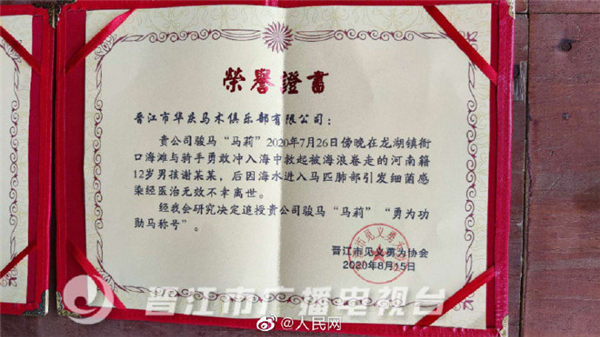 榮譽證書
晋江市华辰马术俱乐部有限公司：
贵公司骏马“马莉”2020年7月26日傍晚在龙湖镇衙
口海滩与骑手勇敢冲入海中救起被海浪卷走的河南籍
12岁男孩谢某某，后因海水进入马匹肺部引发细菌感
染经医治无效不幸离世。
经我会研究决定追投贵公司骏马“马莉”“勇为功
勋马称号”。
晋江市见义勇为协会
2020年8月15日
晋江市广播电视台
@人民网